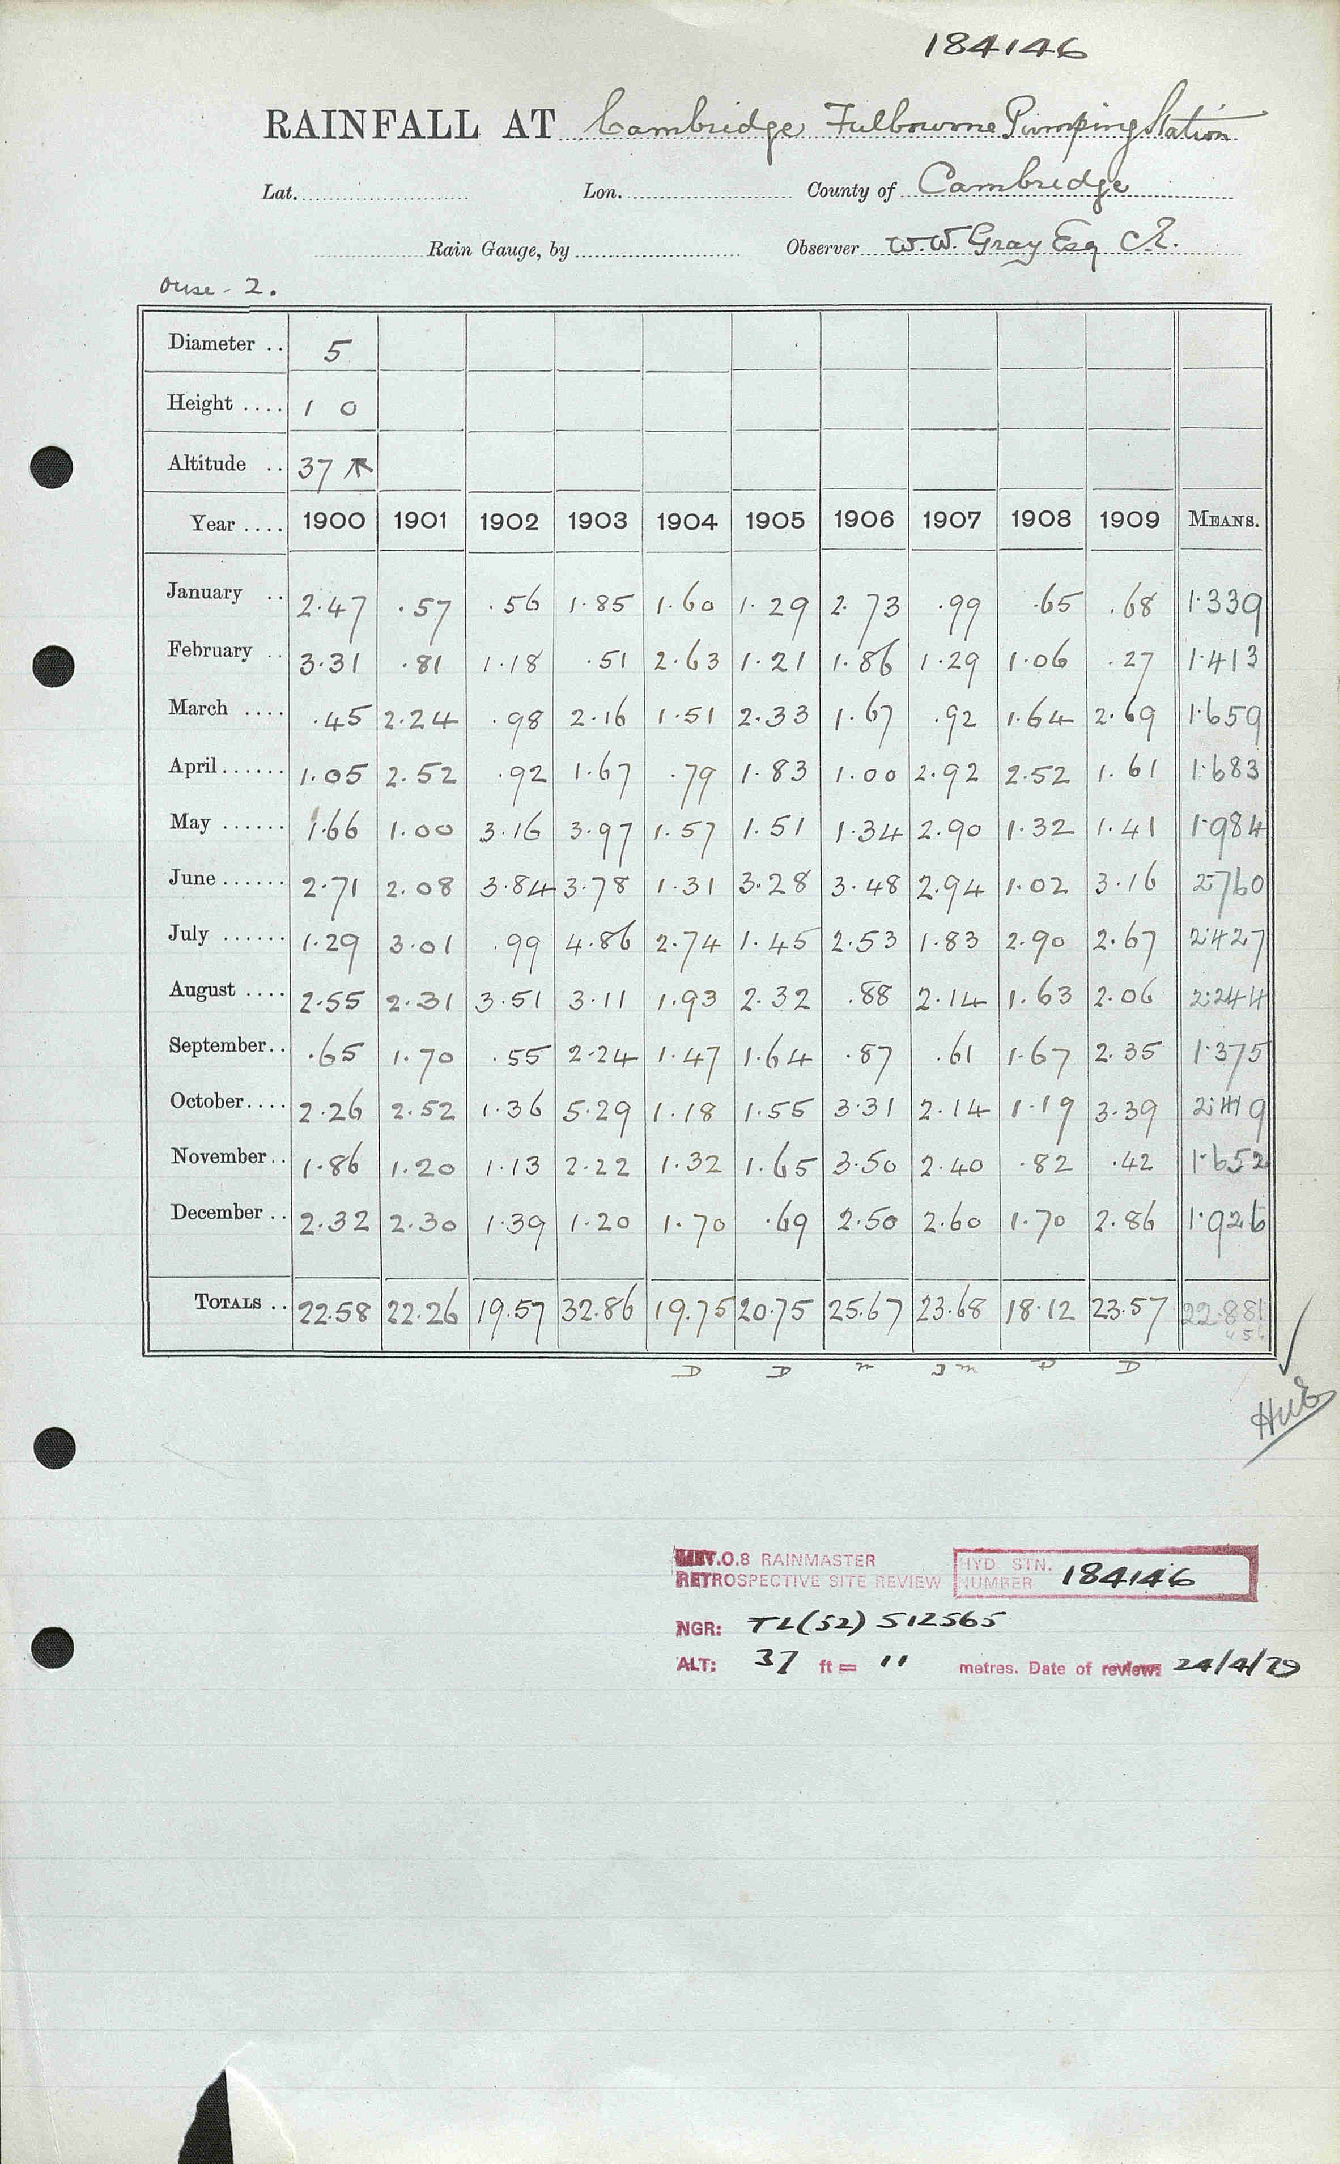 184146
RAINFALL AT Cambridge Fulbourne Pumping Station
Lat. Lon. County of Cambridge
Rain Gauge, by Observer W. W. Gray Esq C.E.
Ouse - 2.
Diameter .. 5
Height .... 1 0
Altitude .. 37
Year .... 1900 1901 1902 1903 1904 1905 1906 1907 1908 1909 MEANS.
January .. 2.47 .57 .56 1.85 1.60 1.29 2.73 .99 .65 .68 1.339
February .. 3.31 .81 1.18 .51 2.63 1.21 1.86 1.29 1.06 .27 1.413
March .... .45 2.24 .98 2.16 1.51 2.33 1.67 .92 1.64 2.69 1.659
April...... 1.05 2.52 .92 1.67 .79 1.83 1.00 2.92 2.52 1.61 1.683
May ...... 1.66 1.00 3.16 3.97 1.57 1.51 1.34 2.90 1.32 1.41 1.984
June...... 2.71 2.08 3.84 3.78 1.31 3.28 3.48 2.94 1.02 3.16 2.760
July ...... 1.29 3.01 .99 4.86 2.74 1.45 2.53 1.83 2.90 2.67 2.427
August .... 2.55 2.31 3.51 3.11 1.93 2.32 .88 2.14 1.63 2.06 2.244
September.. .65 1.70 .55 2.24 1.47 1.64 .87 .61 1.67 2.35 1.375
October.... 2.26 2.52 1.36 5.29 1.18 1.55 3.31 2.14 1.19 3.39 2.419
November.. 1.86 1.20 1.13 2.22 1.32 1.65 3.50 2.40 .82 .42 1.652
December .. 2.32 2.30 1.39 1.20 1.70 .69 2.50 2.60 1.70 2.86 1.926
TOTALS .. 22.58 22.26 19.57 32.86 19.75 20.75 25.67 23.68 18.12 23.57 22.881
D D m D
MET.O.8 RAINMASTER
RETROSPECTIVE SITE REVIEW
HYD STN. NUMBER 184146
NGR: TL(52) 512565
ALT: 37 ft = 11 metres. Date of review: 24/4/79